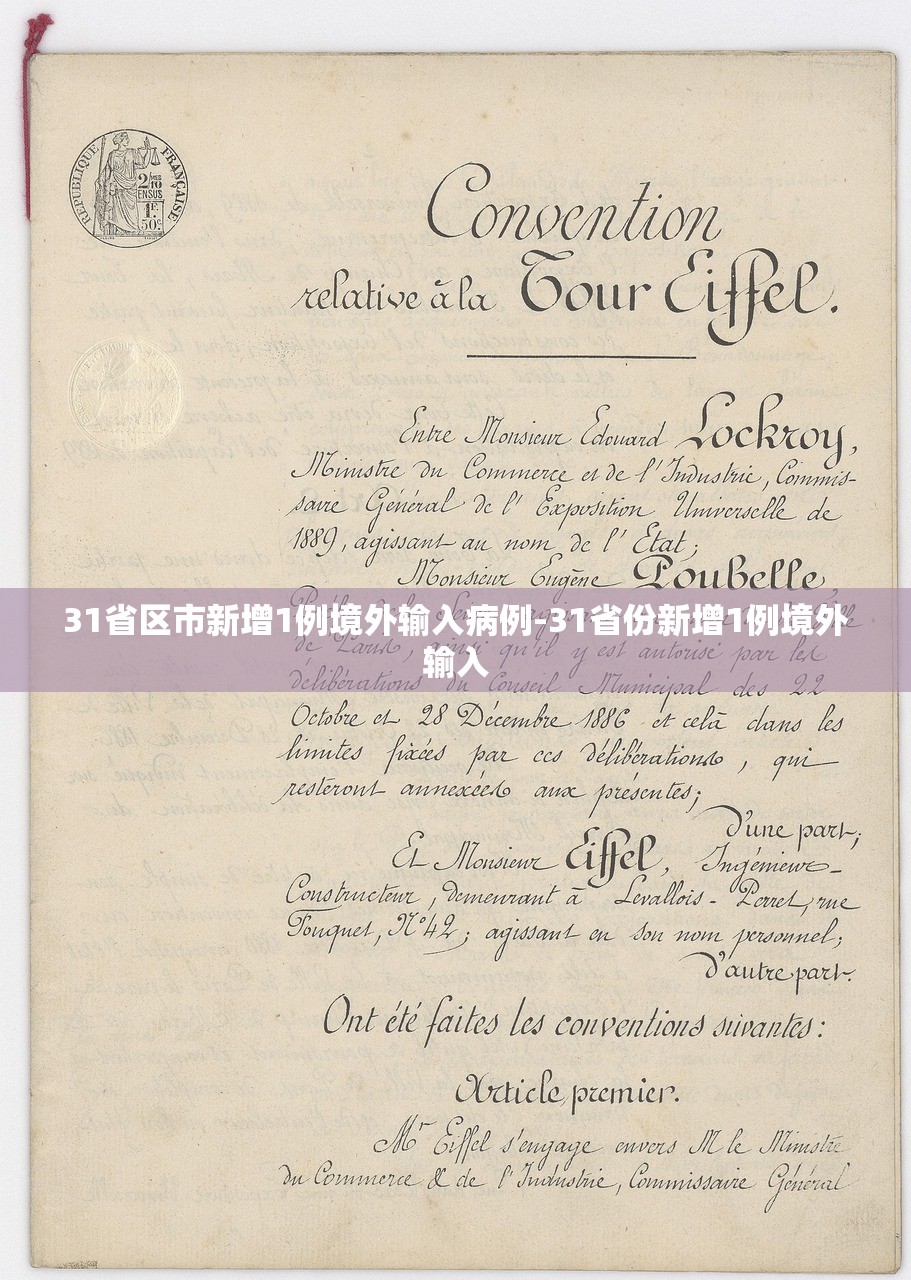 RÉPUBLIQUE FRANÇAISE
2/10
EN SUS
1F.
50c.
Convention
relative à la Tour Eiffel.
Entre Monsieur Edouard Lockroy,
Ministre du Commerce et de l'Industrie, Commis-
saire Général de l'Exposition Universelle de
1889, agissant au nom de l'Etat;
Monsieur Eugène Poubelle,
31省区市新增1例境外输入病例-31省份新增1例境外
de Paris, ainsi qu'il y est autorisé par les
输入
délibérations du Conseil Municipal des 22
Octobre et 28 Décembre 1886 et celà dans les
limites fixées par ces délibérations, qui
resteront annexées aux présentes;
D'une part;
Et Monsieur Eiffel, Ingénieur-
Constructeur, demeurant à Levallois-Perret, rue
Fouquet, N°42; agissant en son nom personnel;
D'autre part.
Ont été faites les conventions suivantes:
Article premier.
Mr Eiffel s'engage envers M le Ministre
du Commerce & de l'Industrie, Commissaire Général